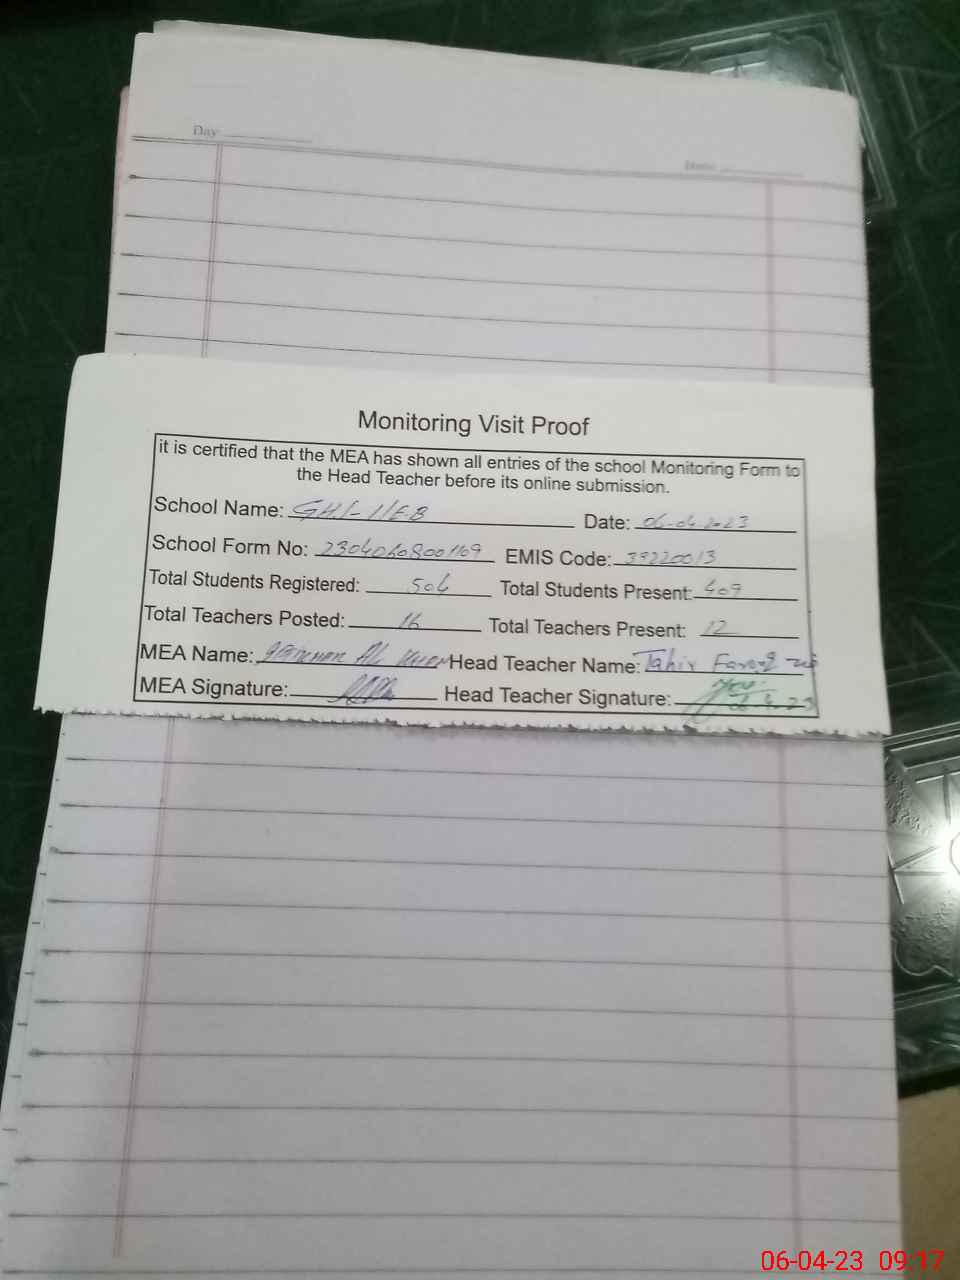 Day
Date:
Monitoring Visit Proof
it is certified that the MEA has shown all entries of the school Monitoring Form to
the Head Teacher before its online submission.
School Name: Date: 06-04-2023
School Form No: EMIS Code: 39220013
Total Students Registered: 504 Total Students Present: 409
Total Teachers Posted: 16 Total Teachers Present: 12
MEA Name: Head Teacher Name: Tahir Farooq
MEA Signature: Head Teacher Signature:
06-04-23 09:17